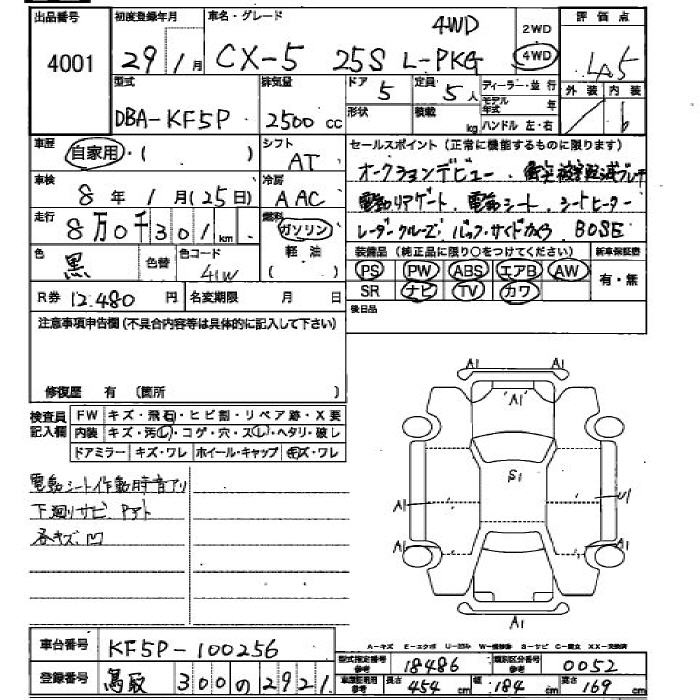 出品番号 初度登録年月 車名・グレード 4WD 2WD 4WD 評価点
4001 29 1月 CX-5 25S L-PKG 4.5
型式 排気量 ドア 5 定員 5人 ディーラー・並行 外装 内装
DBA-KF5P 2500cc 形状 積載 kg モデル年式 年 ハンドル 左・右
車歴 自家用・( ) シフト AT セールスポイント(正常に機能するものに限ります)
車検 8年1月(25日) 冷房 AAC オークションデビュー
走行 8万0千301km 燃料 ガソリン 軽油 電動リアゲート、電動シート、シートヒーター
レーダークルーズ、バックサイドカメラ BOSE
色 黒 色替 色コード 41W 装備品(純正品に限り○をつけてください) 新車保証書
PS PW ABS エアB AW 有・無
R券 12.480円 名変期限 月 日 SR ナビ TV カワ
注意事項申告欄(不具合内容等は具体的に記入して下さい) 後日品
修復歴 有 (箇所 )
検査員記入欄 FW キズ・飛石・ヒビ割・リペア跡・X要
内装 キズ・汚(レ)・コゲ・穴・ス(レ)・ヘタリ・破レ
ドアミラー キズ・ワレ ホイール・キャップ キズ・ワレ
電動シート作動時音アリ
下廻りサビ Pアト
各キズ、凹
A1 A1
A1
S1
A1 U1
A1 A1
A1 A1
A-キズ E-エクボ U-凹み W-補修跡 S-サビ C-腐食 XX-交換済
車台番号 KF5P-100256 型式指定番号 参考 18486 類別区分番号 参考 0052
登録番号 鳥取 300 の 2921 長さ 454cm 幅 184cm 高さ 169cm